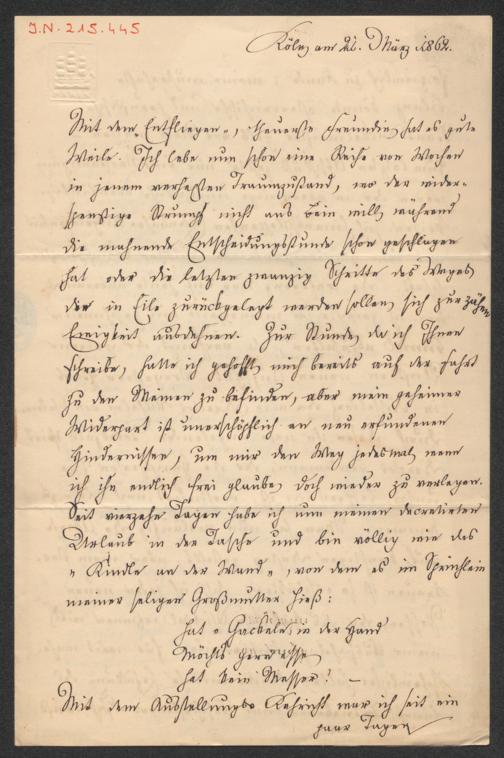 J.N. 215.445
Köln am 21. März 1862.
Mit dem „Entfliegen“, theuerste Freundin, hat es gute
Weile. Ich lebe nun schon eine Reihe von Wochen
in jenem verhaßten Traumzustand, wo der wider-
spenstige Strumpf nicht ans Bein will, während
die mahnende Entscheidungsstunde schon geschlagen
hat oder die letzten zwanzig Schritte des Weges
der in Eile zurückgelegt werden sollen, sich zur zähen
Ewigkeit ausdehnen. Zur Stunde, da ich Ihnen
schreibe, hatte ich gehofft, mich bereits auf der Fahrt
zu den Meinen zu befinden, aber mein geheimer
Widerpart ist unerschöpflich an neu erfundenen
Hindernissen, um mir den Weg jedesmal wenn
ich ihn endlich frei glaube, doch wieder zu verlegen.
Seit vierzehn Tagen habe ich nun meinen decretirten
Urlaub in der Tasche und bin völlig wie das
„Kindle an der Wand“, von dem es im Sprüchlein
meiner seligen Großmutter hieß:
hat a Gackele in der Hand
Möchts gern esse
hat kein Messer! —
Mit dem Ausstellungs Kehricht war ich seit ein
paar Tagen